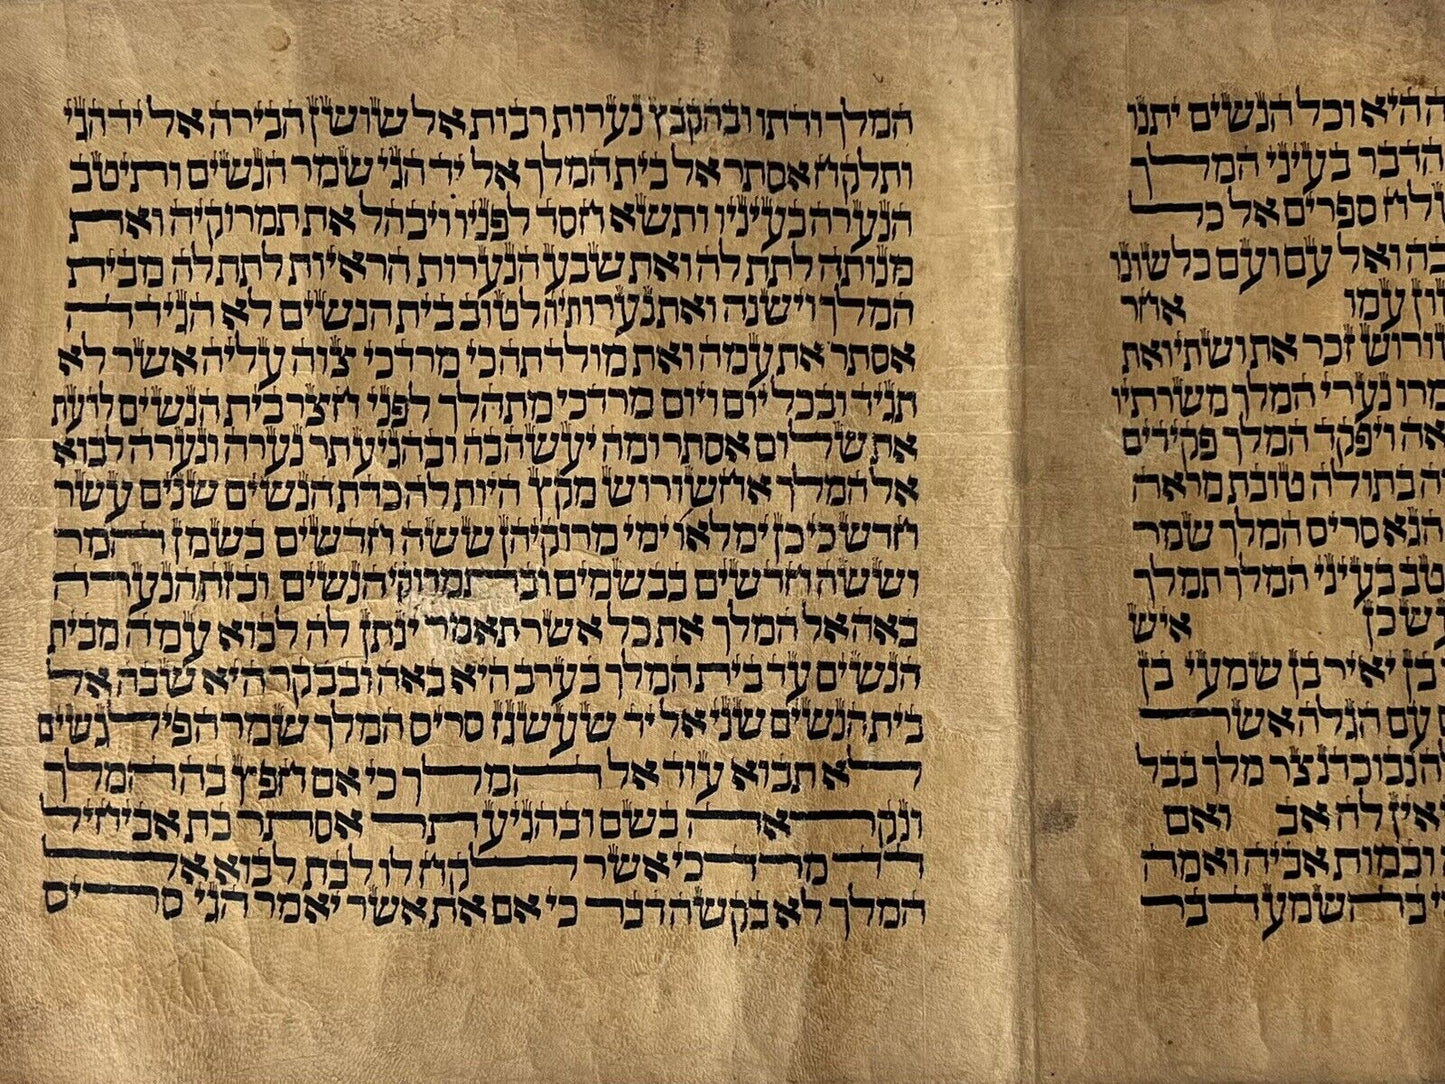 ההיא וכל הנשים יתנו
הדבר בעיני המלך
ספרים אל כל
ואל עם ועם כלשונו
עמו אחר
זכר את ושתי ואת
נערי המלך משרתיו
ויפקד המלך פקידים
בתולה טובת מראה
הגא סריס המלך שמר
בעיני המלך תמלך
כן איש
בן יאיר בן שמעי בן
עם הגלה אשר
נבוכדנצר מלך בבל
אין לה אב ואם
ובמות אביה ואמה
בהשמע דבר
המלך ודתו ובהקבץ נערות רבות אל שושן הבירה אל יד הגי
ותלקח אסתר אל בית המלך אל יד הגי שמר הנשים ותיטב
הנערה בעיניו ותשא חסד לפניו ויבהל את תמרוקיה ואת
מנותה לתת לה ואת שבע הנערות הראיות לתת לה מבית
המלך וישנה ואת נערותיה לטוב בית הנשים לא הגידה
אסתר את עמה ואת מולדתה כי מרדכי צוה עליה אשר לא
תגיד ובכל יום ויום מרדכי מתהלך לפני חצר בית הנשים לדעת
את שלום אסתר ומה יעשה בה ובהגיע תר נערה ונערה לבוא
אל המלך אחשורוש מקץ היות לה כדת הנשים שנים עשר
חדש כי כן ימלאו ימי מרוקיהן ששה חדשים בשמן המר
וששה חדשים בבשמים ובתמרוקי הנשים ובזה הנערה
באה אל המלך את כל אשר תאמר ינתן לה לבוא עמה מבית
הנשים עד בית המלך בערב היא באה ובבקר היא שבה אל
בית הנשים שני אל יד שעשגז סריס המלך שמר הפילגשים
לא תבוא עוד אל המלך כי אם חפץ בה המלך
ונקראה בשם ובהגיע תר אסתר בת אביחיל
דד מרדכי אשר לקח לו לבת לבוא אל
המלך לא בקשה דבר כי אם את אשר יאמר הגי סריס